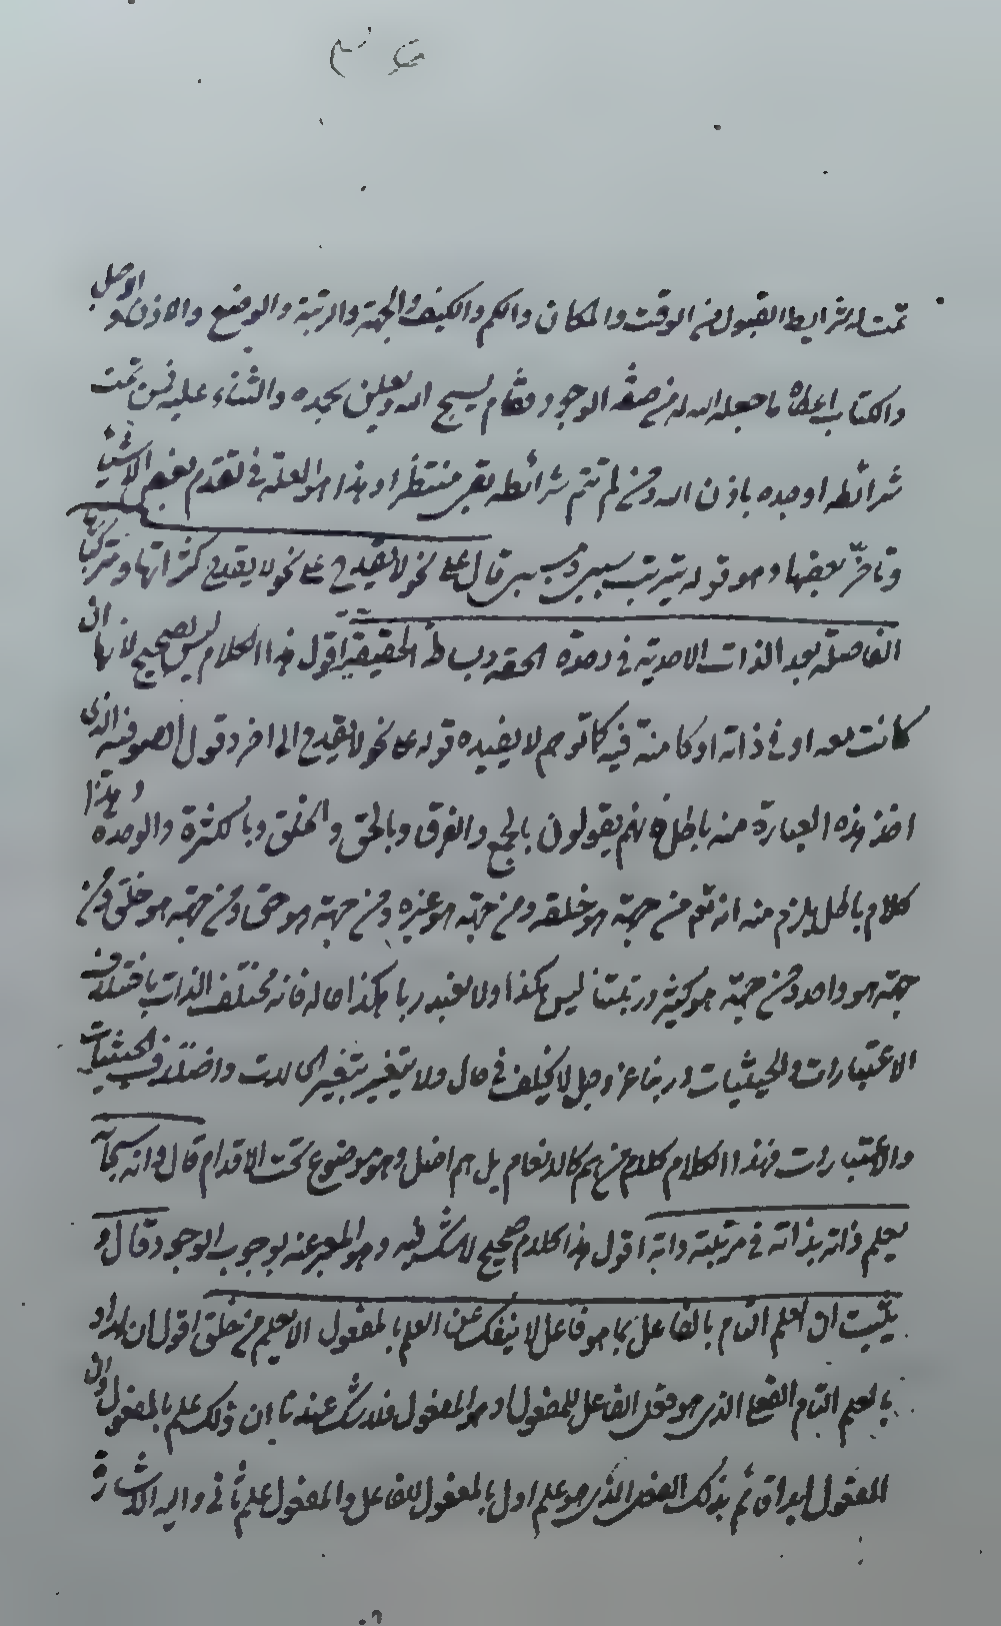 تمت له شرايط القبول من الوقت والمكان والكم والكيف والجهة والرتبة والوضع والاذن والاجل
والكتاب اعطاه ما جعله الله له من صفة الوجود فقام يسبح الله ويعلن بحمده والثناء عليه فمن تمت
شرائطه اوجده باذن الله ومن لم تتم شرائطه بقى منتظرا وهذا هو العلة في تقدم بعض الاشياء
وتاخر بعضها وهو قوله بترتيب سببى ومسببى قال على نحو لا يقدح كثراتها وتركيباتها
الفاصلة بعد الذات الاحدية في وحدة الحقة وبساطة الحقيقية اقول هذا الكلام ليس بصحيح لانها ان
كانت معه او في ذاته او كامنة فيه كما توهم لا يفيده قوله على نحو لا يقدح الى اخر وقول الصوفية الذى
اخذ هذه العبارة منه باطل فانهم يقولون بالجمع والفرق وبالحق والخلق وبالكثرة والوحدة وهذا
كلام باطل يلزم منه انه تعم من جهة هو خلقه ومن جهة هو غيره ومن جهة هو حق ومن جهة هو خلق ومن
جهة هو واحد ومن جهة هو كثير وربنا ليس هكذا ولا نعبد ربا هكذا حاله فانه مختلف الذات باختلاف
الاعتبارات والحيثيات وربنا عز وجل لا يختلف في حال ولا يتغير بتغير الحالات واختلاف الحيثيات
والاعتبارات فهذا الكلام كلام من هم كالانعام بل هم اضل وهو موضوع تحت الاقدام قال وانه سبحانه
يعلم ذاته بذاته في مرتبة ذاته اقول هذا كلام صحيح لا شك فيه وهو المعبر عنه بوجوب الوجود قال و
يثبت ان العلم التام بالفاعل بما هو فاعل لا ينفك عن العلم بالمفعول الا يعلم من خلق اقول ان اراد
بالعلم التام الفعلى الذى هو فعل الفاعل للمفعول او هو المفعول فلا شك عندنا ان ذلك علم بالمفعول وان
المفعول ثم بذلك الفعل الذى هو علم اول بالمفعول للفاعل والمفعول علم ثانى واليه الاشارة